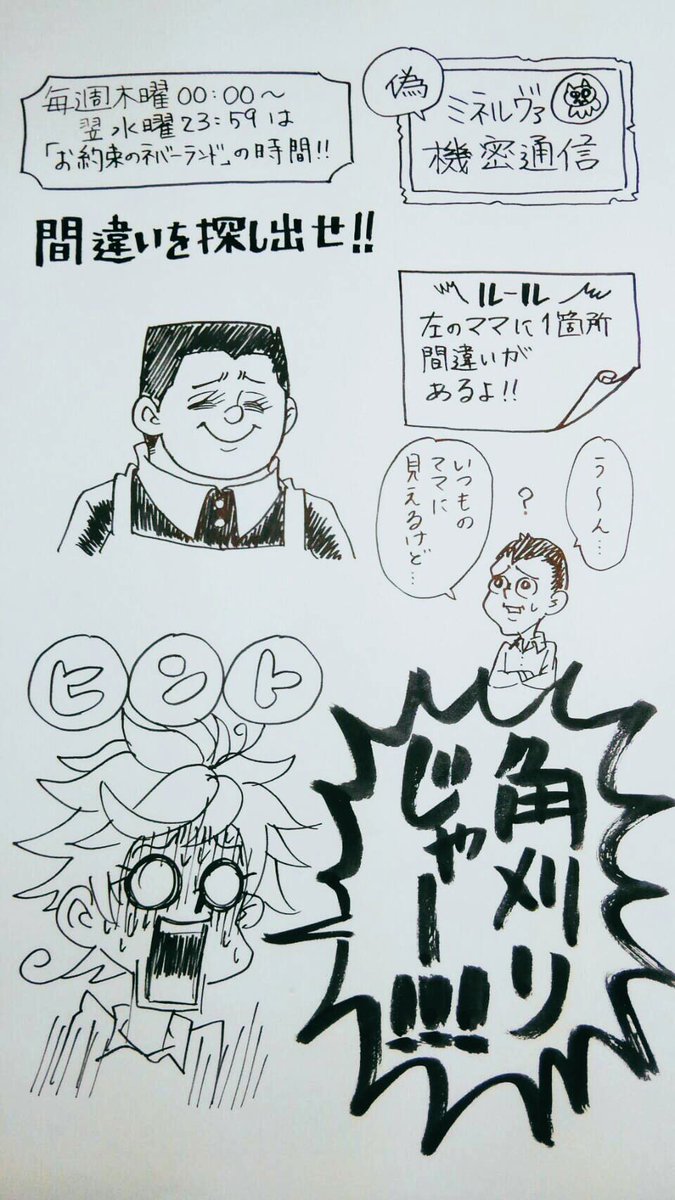 毎週木曜00:00〜
翌水曜23:59は
「お約束のネバーランド」の時間!!
偽
ミネルヴァ
機密通信
間違いを探し出せ!!
ルール
左のママに1箇所
間違いが
あるよ!!
う〜ん…
?
いつもの
ママに
見えるけど…
ヒント
角刈り
じゃー!!!